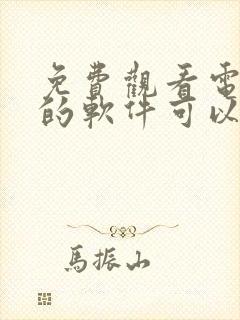 免費觀看電
的軟件可以
馬振山